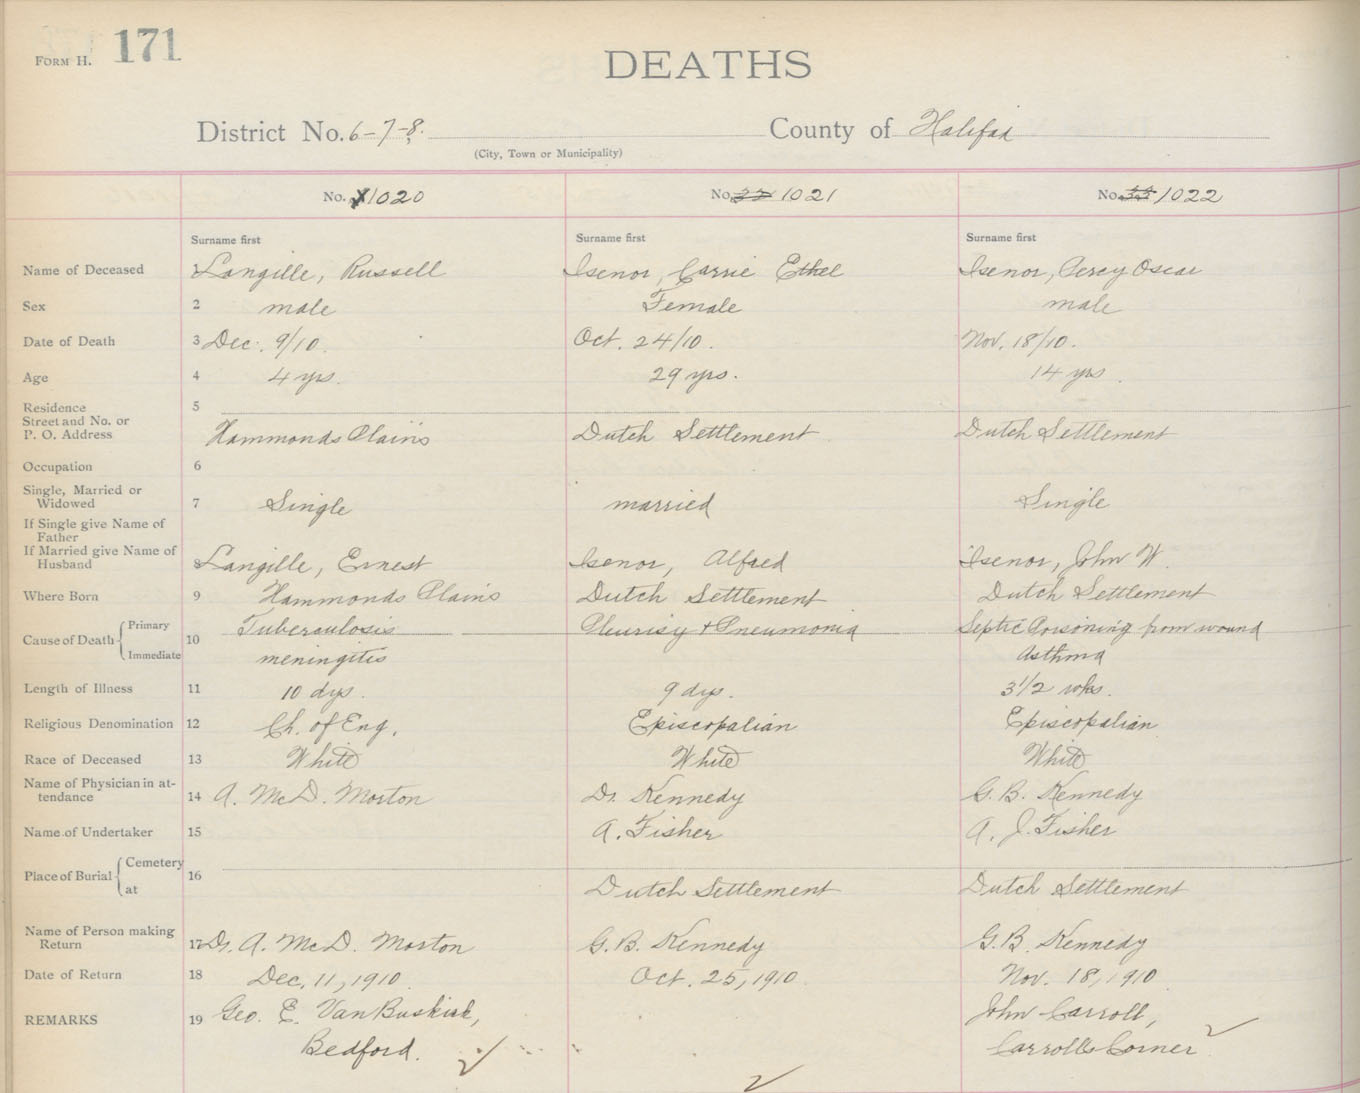 FORM H. 171
DEATHS
District No. 6-7-8. County of Halifax
(City, Town or Municipality)
No. 1020 No. 1021 No. 33 1022
Surname first Surname first Surname first
Name of Deceased 1 Langille, Russell Isenor, Carrie Ethel Isenor, Percy Oscar
Sex 2 male Female male
Date of Death 3 Dec. 9/10. Oct. 24/10. Nov. 18/10.
Age 4 4 yrs. 29 yrs. 14 yrs.
Residence 5
Street and No. or
P. O. Address Hammonds Plains Dutch Settlement Dutch Settlement
Occupation 6
Single, Married or
Widowed 7 Single married Single
If Single give Name of
Father
If Married give Name of
Husband 8 Langille, Ernest Isenor, Alfred Isenor, John W.
Where Born 9 Hammonds Plains Dutch Settlement Dutch Settlement
Cause of Death Primary 10 Tuberculosis Pleurisy + Pneumonia Septic Poisoning from wound
Immediate meningitis Asthma
Length of Illness 11 10 dys. 9 dys. 3 1/2 wks.
Religious Denomination 12 Ch. of Eng. Episcopalian Episcopalian
Race of Deceased 13 White White White
Name of Physician in at-
tendance 14 A. McD. Morton Dr. Kennedy G. B. Kennedy
Name of Undertaker 15 A. Fisher A. J. Fisher
Place of Burial Cemetery 16
at Dutch Settlement Dutch Settlement
Name of Person making
Return 17 Dr. A. McD. Morton G. B. Kennedy G. B. Kennedy
Date of Return 18 Dec. 11, 1910. Oct. 25, 1910. Nov. 18, 1910
REMARKS 19 Geo. E. VanBuskirk, John Carroll,
Bedford. Carrolls Corner